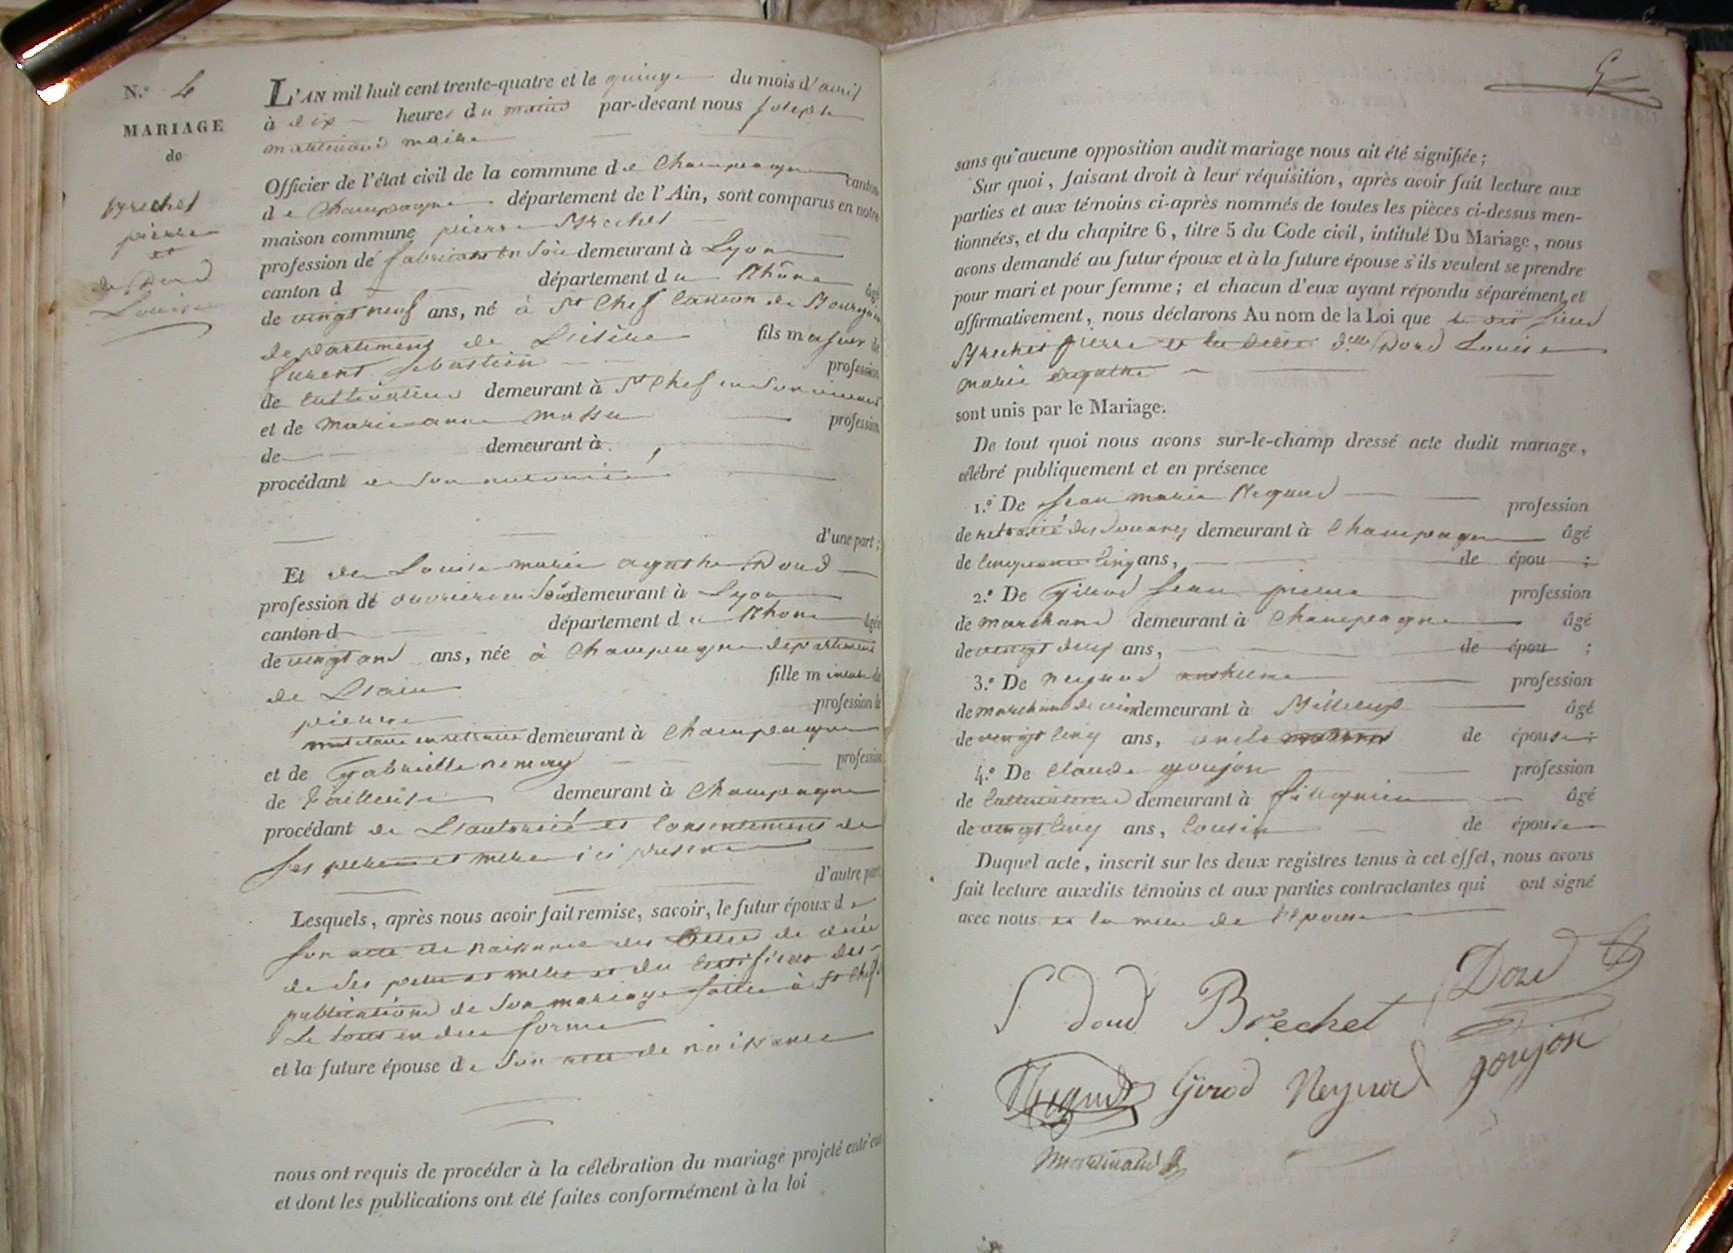 N.º 4
MARIAGE
de
Brechet
pierre
et
de Dord
Louise
L'AN mil huit cent trente-quatre et le quinze du mois d'avril
à dix heures du matin par-devant nous joseph
martinand maire
Officier de l'état civil de la commune de Champagne canton
de Champagne département de l'Ain, sont comparus en notre
maison commune pierre Brechet
profession de fabricant en Soie demeurant à Lyon
canton d département du Rhône âgé
de vingt neuf ans, né à St Chef Canton de Bourgoin
departement de L'isère fils majeur de
furent Sebastien profession
de Cultivateur demeurant à St Chef en Son vivant
et de marie anne profession
de demeurant à
procédant de Son autorité
d'une part;
Et de Louise marie agathe Dord
profession de ouvriere en Soie demeurant à Lyon
canton d département du Rhone âgée
de vingt ans, née à Champagne departement
de L'ain fille mineure de
pierre profession de
militaire en retraite demeurant à Champagne
et de Gabrielle profession
de Tailleuse demeurant à Champagne
procédant de L'autorité et Consentement de
Ses pere et mere ici present
d'autre part
Lesquels, après nous avoir fait remise, savoir, le futur époux de
Son acte de naissance des actes de décès
de Ses pere et mere et du Certificat des
publications de Son mariage faites à St Chef
Le tout en due forme
et la future épouse de Son acte de naissance
nous ont requis de procéder à la célébration du mariage projeté entr'eux
et dont les publications ont été faites conformément à la loi
sans qu'aucune opposition audit mariage nous ait été signifiée;
Sur quoi, faisant droit à leur réquisition, après avoir fait lecture aux
parties et aux témoins ci-après nommés de toutes les pièces ci-dessus men-
tionnées, et du chapitre 6, titre 5 du Code civil, intitulé Du Mariage, nous
avons demandé au futur époux et à la future épouse s'ils veulent se prendre
pour mari et pour femme; et chacun d'eux ayant répondu séparément et
affirmativement, nous déclarons Au nom de la Loi que le dit Sieur
Brechet pierre et la dite d.lle Dord Louise
marie agathe
sont unis par le Mariage.
De tout quoi nous avons sur-le-champ dressé acte dudit mariage,
célébré publiquement et en présence
1.º De Jean marie profession
de retraité des Douanes demeurant à Champagne âgé
de Cinquante Cinq ans, de épou ;
2.º De Girod Jean pierre profession
de marchand demeurant à Champagne âgé
de vingt deux ans, de épou ;
3.º De neynod anthelme profession
de marchand de vin demeurant à Billieux âgé
de vingt Cinq ans, oncle de épouse;
4.º De Claude goujon profession
de Cultivateur demeurant à fitignieu âgé
de vingt Cinq ans, Cousin de épouse
Duquel acte, inscrit sur les deux registres tenus à cet effet, nous avons
fait lecture auxdits témoins et aux parties contractantes qui ont signé
avec nous et la mere de l'épouse
L dord Brechet Dord
Girod Neynod goujon
Martinand